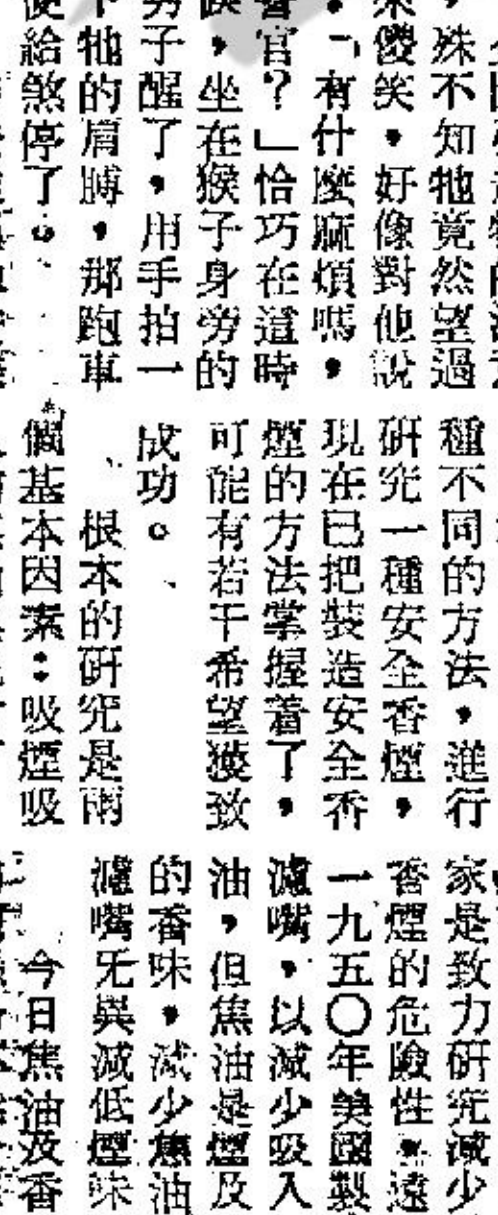 殊不知牠竟然望過
來傻笑，好像對他說
。「有什麼麻煩嗎，
警官？」恰巧在這時
，坐在猴子身旁的
男子醒了，用手拍一
下牠的肩膊，那跑車
便給煞停了。
種不同的方法，進行
研究一種安全香煙，
現在已把裝造安全香
煙的方法掌握着了，
可能有若干希望獲致
成功。
根本的研究是兩
個基本因素：吸煙吸
家是致力研究減少
香煙的危險性。遠
一九五〇年美國製
濾嘴，以減少吸入
油，但焦油是煙及
的香味，減少焦油
濾嘴无與減低煙味
今日焦油及香